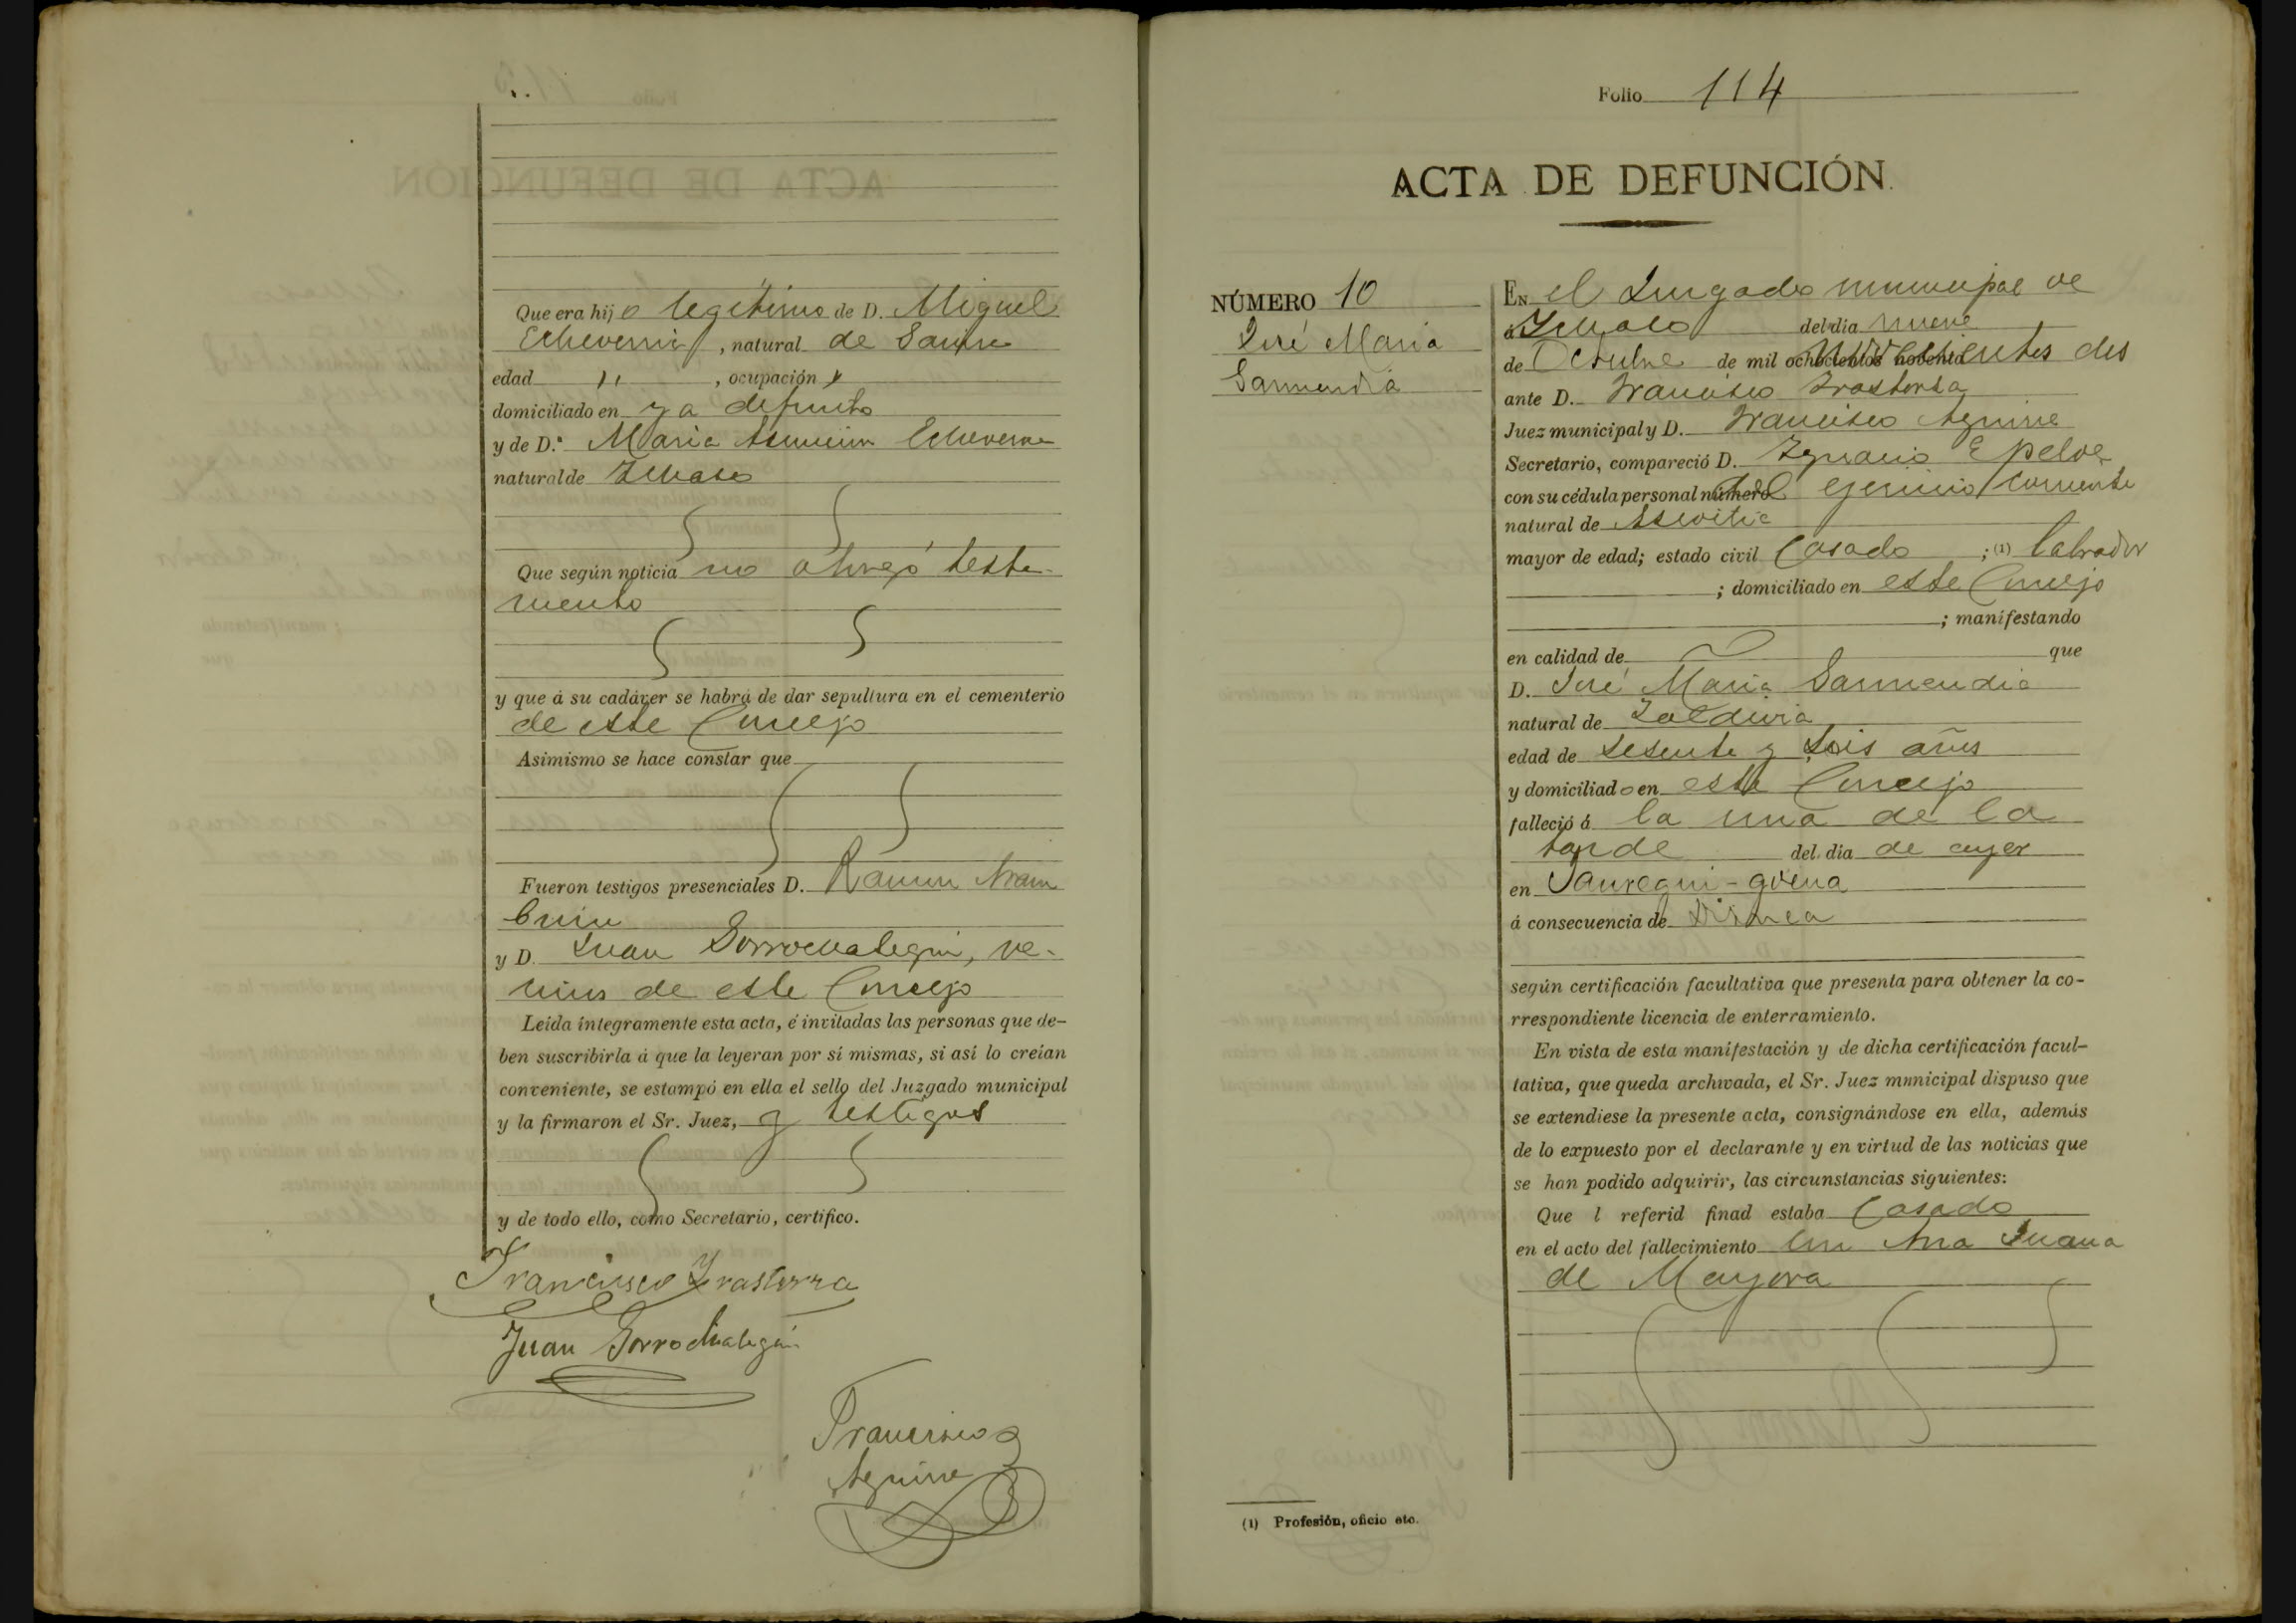 Que era hijo legítimo de D. Miguel
Echeverria, natural de
edad " , ocupación "
domiciliado en ya difunto
y de D.ª Maria Asuncion Echeverria
natural de Ichaso
Que según noticia no otorgó testa-
mento
y que á su cadáver se habrá de dar sepultura en el cementerio
de este Concejo
Asimismo se hace constar que
Fueron testigos presenciales D. Ramon Aram
buru
y D. Juan Gorrochategui, ve-
cinos de este Concejo
Leída íntegramente esta acta, é invitadas las personas que de-
ben suscribirla á que la leyeran por sí mismas, si así lo creían
conveniente, se estampó en ella el sello del Juzgado municipal
y la firmaron el Sr. Juez, y testigos
y de todo ello, como Secretario, certifico.
Francisco Yrastorza
Juan Gorrochategui
Francisco
Aguirre
Folio 114
ACTA DE DEFUNCIÓN.
NÚMERO 10
José Maria
Garmendia
EN el Juzgado municipal de
á Ichaso del dia nueve
de Octubre de mil ochocientos noventa novecientos dos
ante D. Francisco Irastorza
Juez municipal y D. Francisco Aguirre
Secretario, compareció D. Ygnacio Epelde
con su cédula personal número del ejercicio corriente
natural de Azcoitia
mayor de edad; estado civil Casado ; (1) labrador
; domiciliado en este Concejo
; manifestando
en calidad de que
D. José Maria Garmendia
natural de Zaldivia
edad de sesenta y seis años
y domiciliado en este Concejo
falleció á la una de la
tarde del dia de ayer
en Jauregui-goena
á consecuencia de
según certificación facultativa que presenta para obtener la co-
rrespondiente licencia de enterramiento.
En vista de esta manifestación y de dicha certificación facul-
tativa, que queda archivada, el Sr. Juez municipal dispuso que
se extendiese la presente acta, consignándose en ella, además
de lo expuesto por el declarante y en virtud de las noticias que
se han podido adquirir, las circunstancias siguientes:
Que l referid finad estaba Casado
en el acto del fallecimiento con Ana Juana
de Mayora
(1) Profesión, oficio etc.